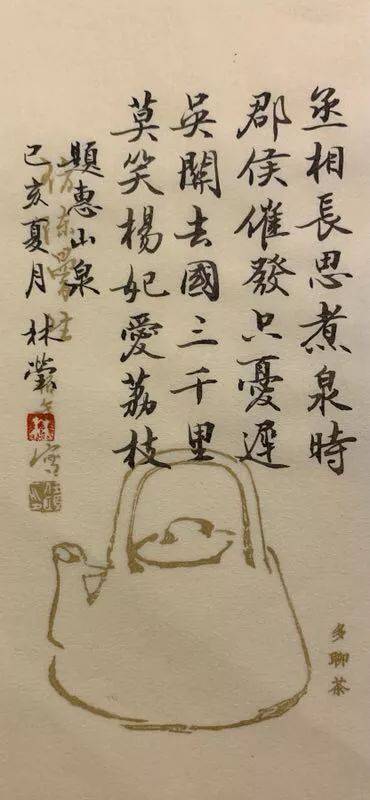 丞相長思煮泉時
郡侯催發只憂遲
吳關去國三千里
莫笑楊妃愛荔枝
題惠山泉
己亥夏月 林瑩
多聊茶